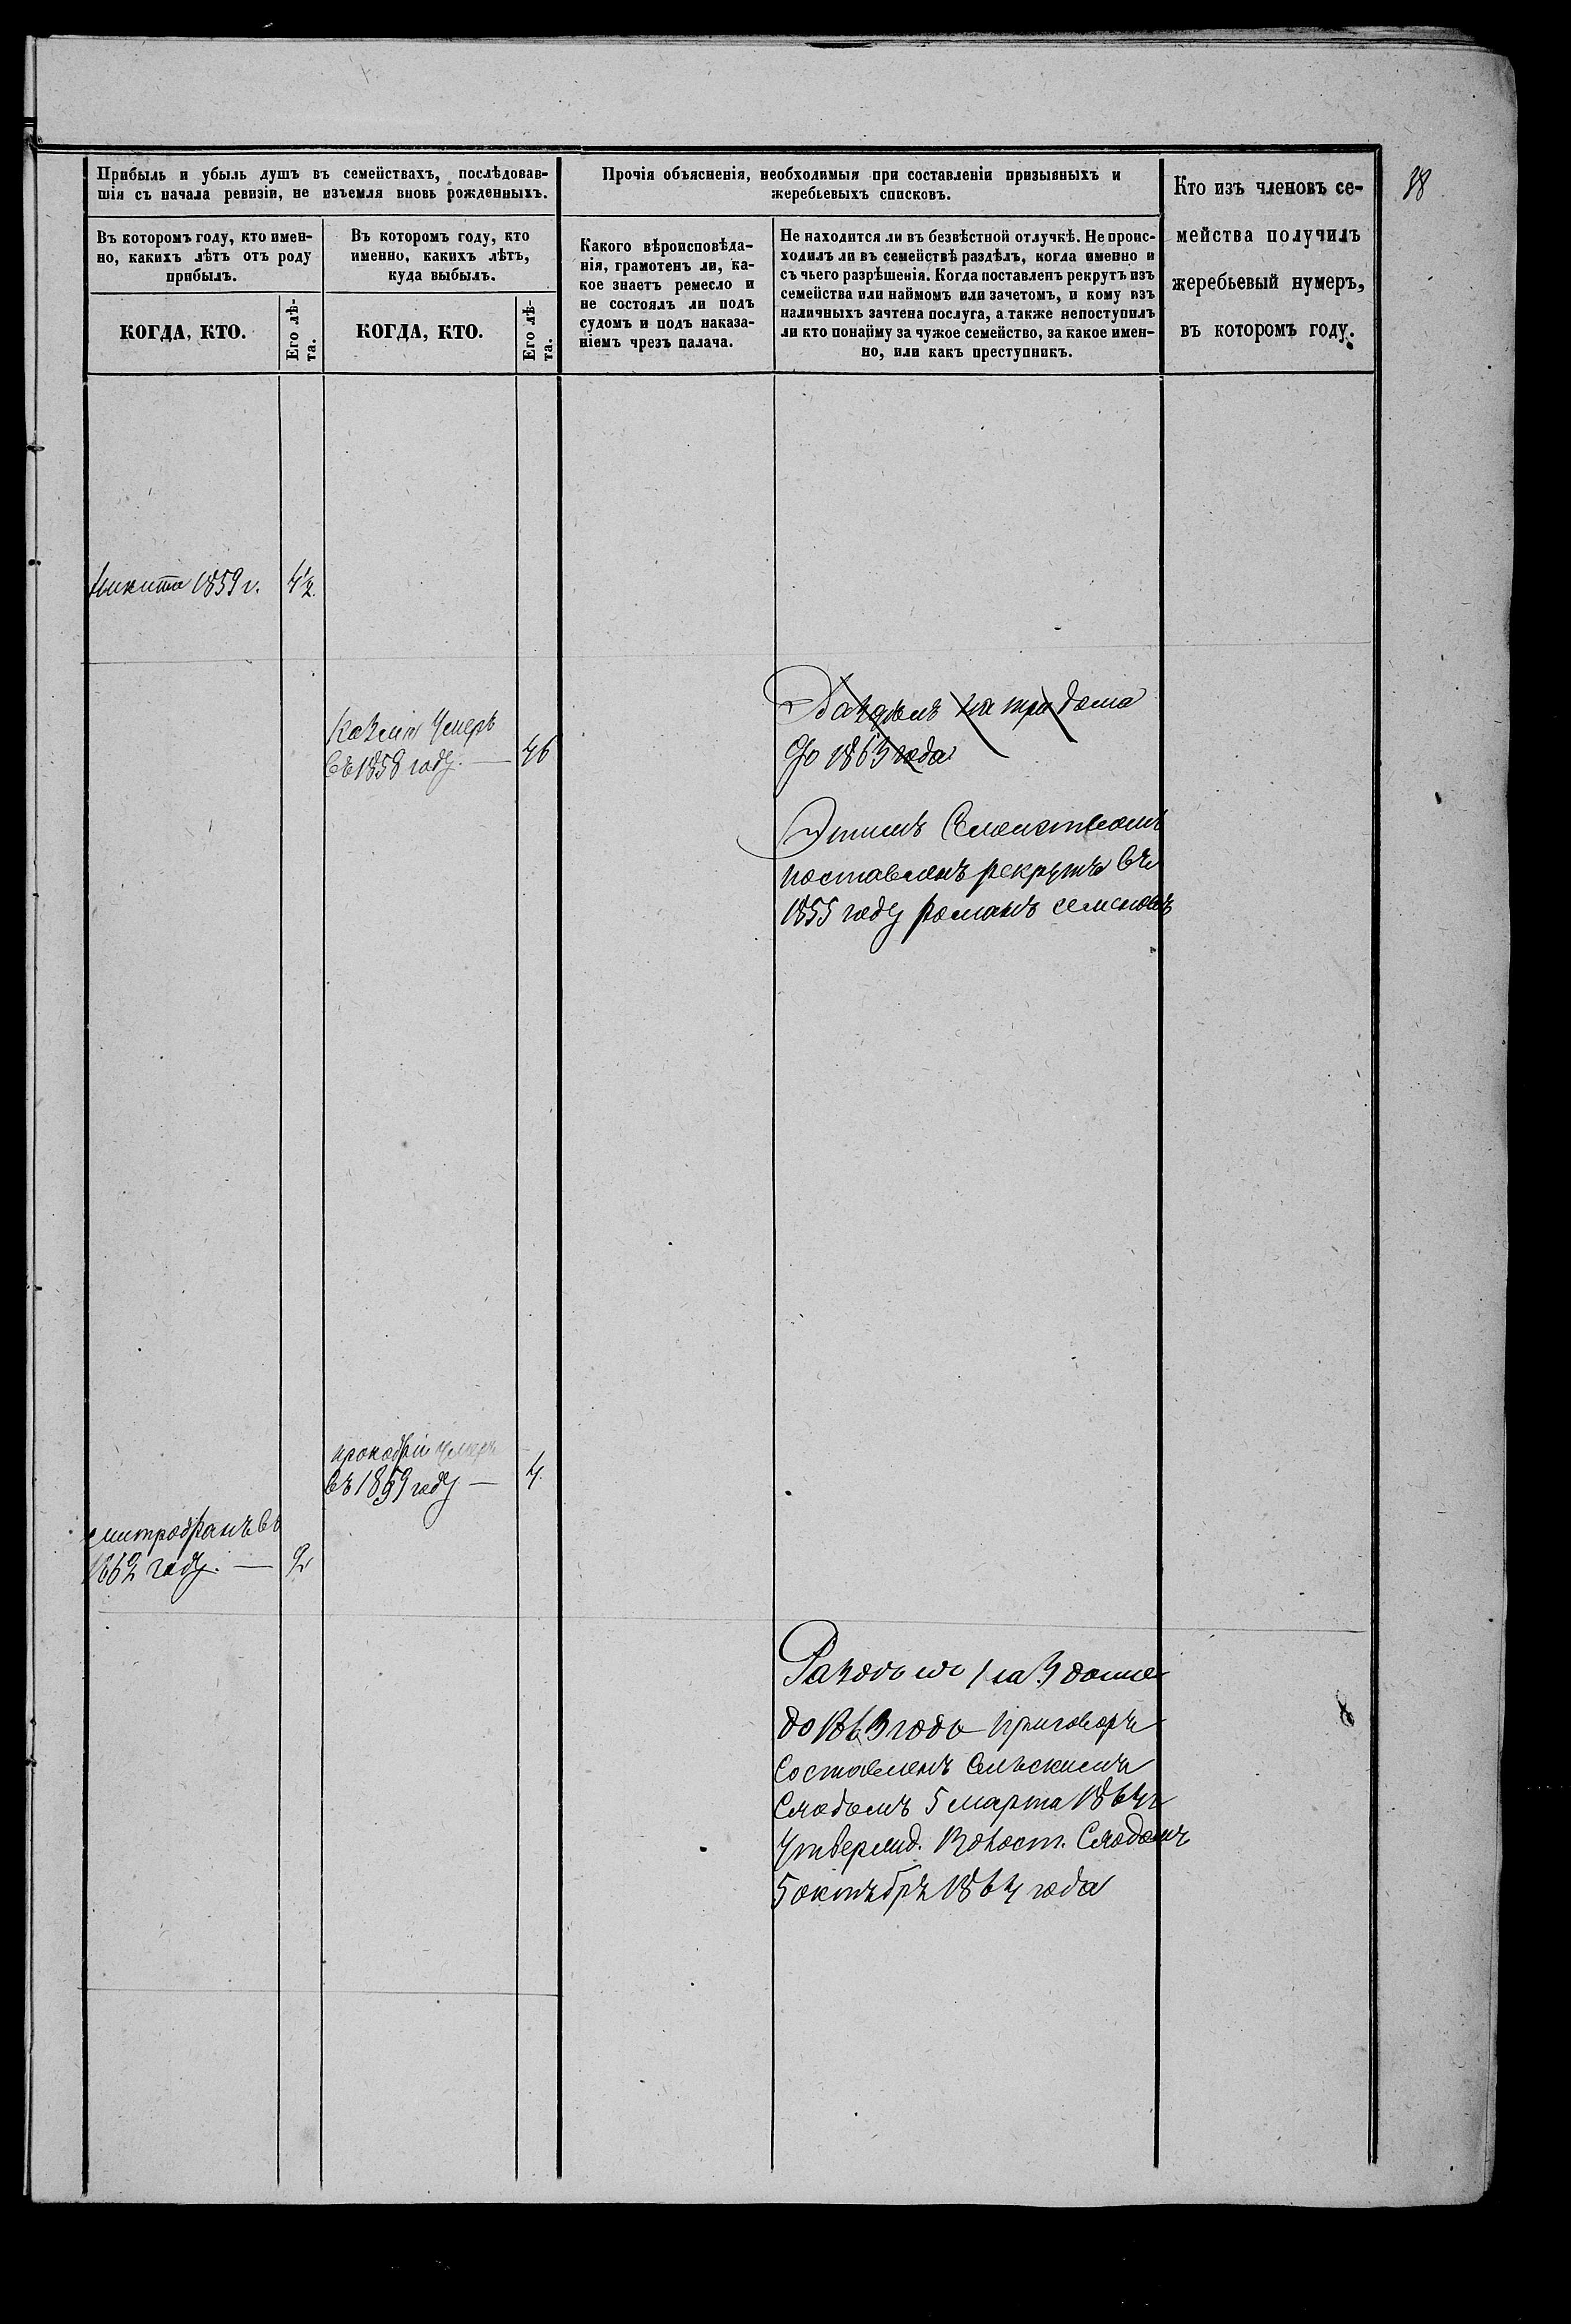 18
Прибыль и убыль душъ въ семействахъ, послѣдовав-
шія съ начала ревизіи, не изъемля вновь рожденныхъ.
Прочія объясненія, необходимыя при составленіи призывныхъ и
жеребьевыхъ списковъ.
Кто изъ членовъ се-
мейства получилъ
жеребьевый нумеръ,
въ которомъ году.
Въ которомъ году, кто имен-
но, какихъ лѣтъ отъ роду
прибылъ.
Въ которомъ году, кто
именно, какихъ лѣтъ,
куда выбылъ.
Какого вѣроисповѣда-
нія, грамотенъ ли, ка-
кое знаетъ ремесло и
не состоялъ ли подъ
судомъ и подъ наказа-
ніемъ чрезъ палача.
Не находится ли въ безвѣстной отлучкѣ. Не проис-
ходилъ ли въ семействѣ раздѣлъ, когда именно и
съ чьего разрѣшенія. Когда поставленъ рекрутъ изъ
семейства или наймомъ или зачетомъ, и кому изъ
наличныхъ зачтена послуга, а также непоступилъ
ли кто понайму за чужое семейство, за какое имен-
но, или какъ преступникъ.
КОГДА, КТО.
Его лѣ-
та.
КОГДА, КТО.
Его лѣ-
та.
Никита 1859 г.
4½.
Казма Умеръ
въ 1858 году. — 46
на три дома
до 1863 года
Этимъ Семействомъ
поставленъ рекрутъ въ
1855 году романъ семеновъ
прокофiй умеръ
въ 1859 году — 4.
митрофанъ въ
1862 году. — 2
Раздѣлъ на 3 дома
до 1863 года приговоръ
Составленъ Сельскимъ
Сходомъ 5 марта 1864 г
Утвержд. Волост. Сходомъ
5 октября 1864 года